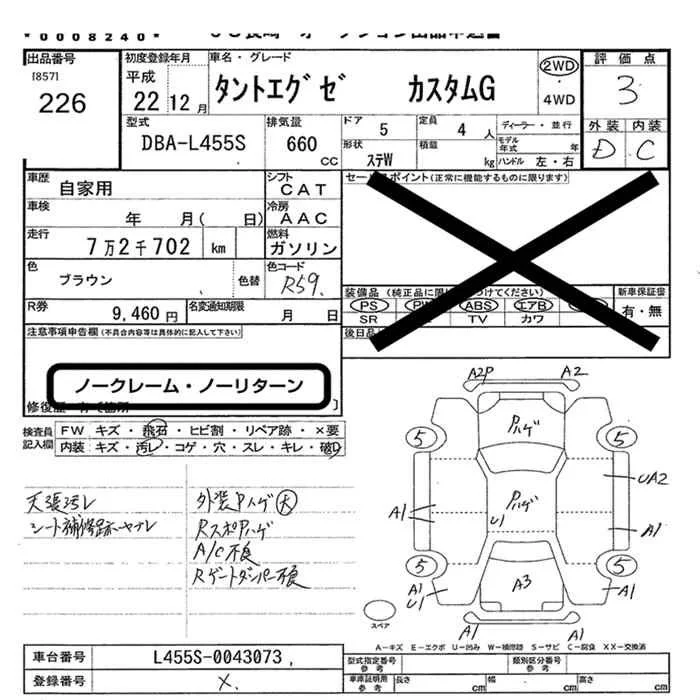 *0008240*
出品番号
[857]
226
初度登録年月
平成
22 12月
車名・グレード
タントエグゼ カスタムG
2WD
・
4WD
評価点
3
外装 内装
D C
型式
DBA-L455S
排気量
660
CC
ドア
5
定員
4 人
形状
ステW
積載
kg
ディーラー・並行
モデル年式 年
ハンドル 左・右
車歴
自家用
シフト
CAT
車検
年 月( 日)
冷房
AAC
走行
7万2千702 km
燃料
ガソリン
色
ブラウン
色替
色コード
R59
R券
9,460円
名変通知期限
月 日
セー ポイント(正常に機能するものに限ります)
装備品(純正品に限 つけてください)
PS PW ABS エアB
SR TV カワ
新車保証書
有・無
後日品
注意事項申告欄(不具合内容等は具体的に記入して下さい)
ノークレーム・ノーリターン
検査員
記入欄
FW キズ・飛石・ヒビ割・リペア跡・×要
内装 キズ・汚レ・コゲ・穴・スレ・キレ・破レ
天張汚レ
シート補修跡・ヤブレ
外装Pハゲ大
RスポPハゲ
A/C不良
Rゲートダンパー不良
A2P A2
Pハゲ
5 5
Pハゲ
UA2
A1 U1
A1
5 5
A3
A1
U1
A1
A1 A1
スペア
A-キズ E-エクボ U-凹み W-補修跡 S-サビ C-腐食 XX-交換済
車台番号
L455S-0043073
登録番号
X.
型式指定番号
参考
類別区分番号
参考
車庫証明用
参考
長さ cm 幅 cm 高さ cm